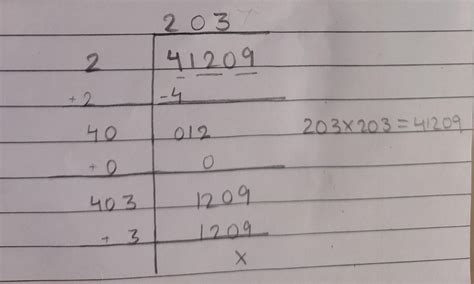 203
2 41209
+2 -4
40 012 203×203=41209
+0 0
403 1209
+3 1209
x